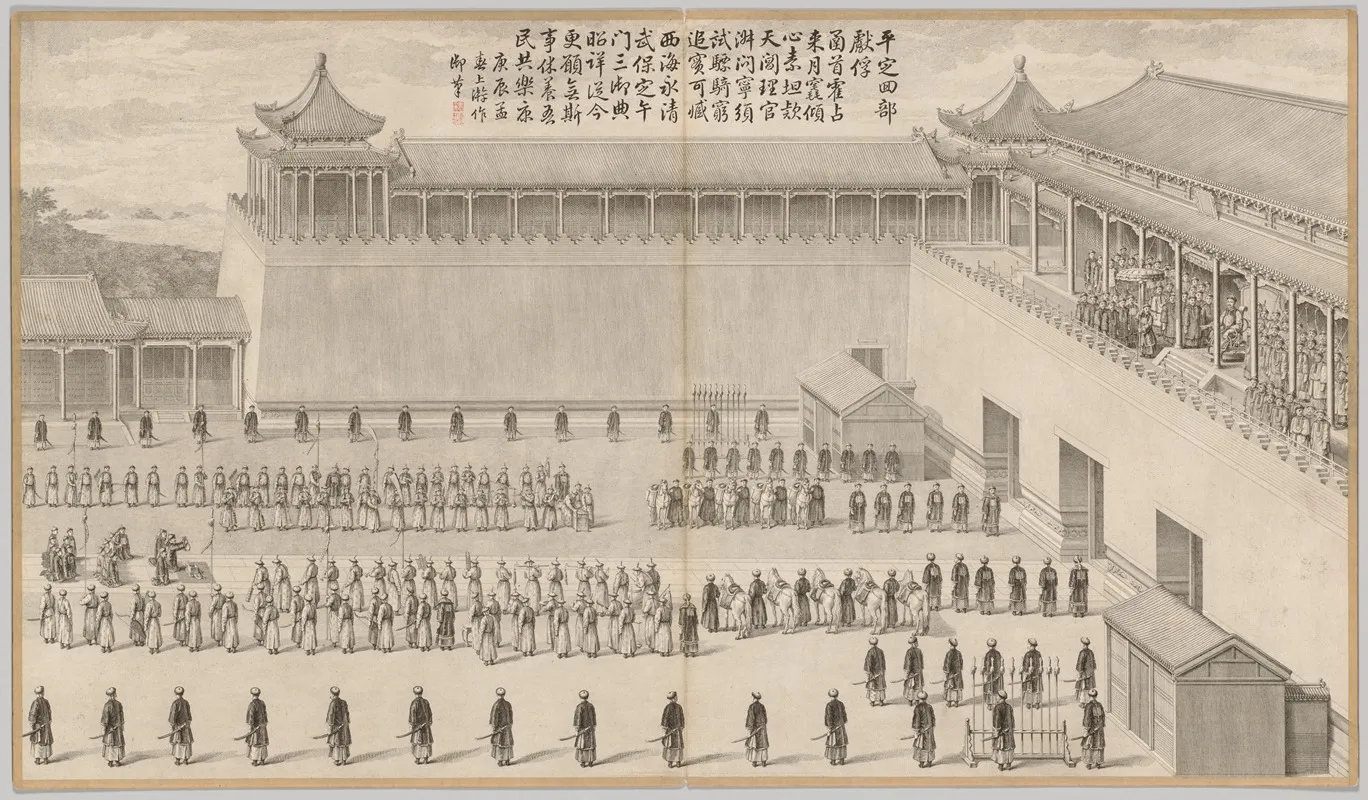 平定回部
獻俘
函首霍占
来月竁傾
心素坦欵
天閶理官
淑问寧須
試驃騎窮
追實可臧
西海永清
武保定午
门三御典
昭祥從今
更願無斯
事休養吾
民共樂康
庚辰孟
春上澣作
御筆